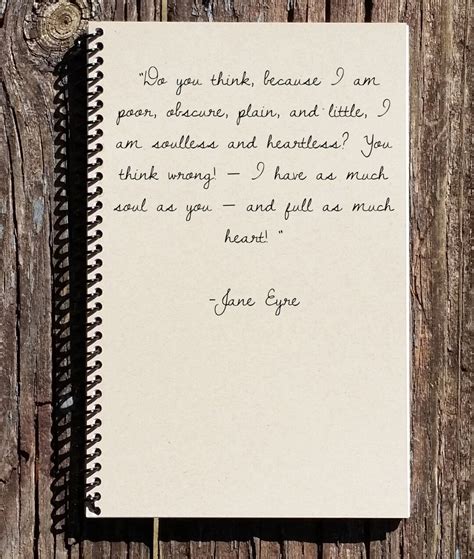 "Do you think, because I am
poor, obscure, plain, and little, I
am soulless and heartless? You
think wrong! – I have as much
soul as you – and full as much
heart! "
-Jane Eyre